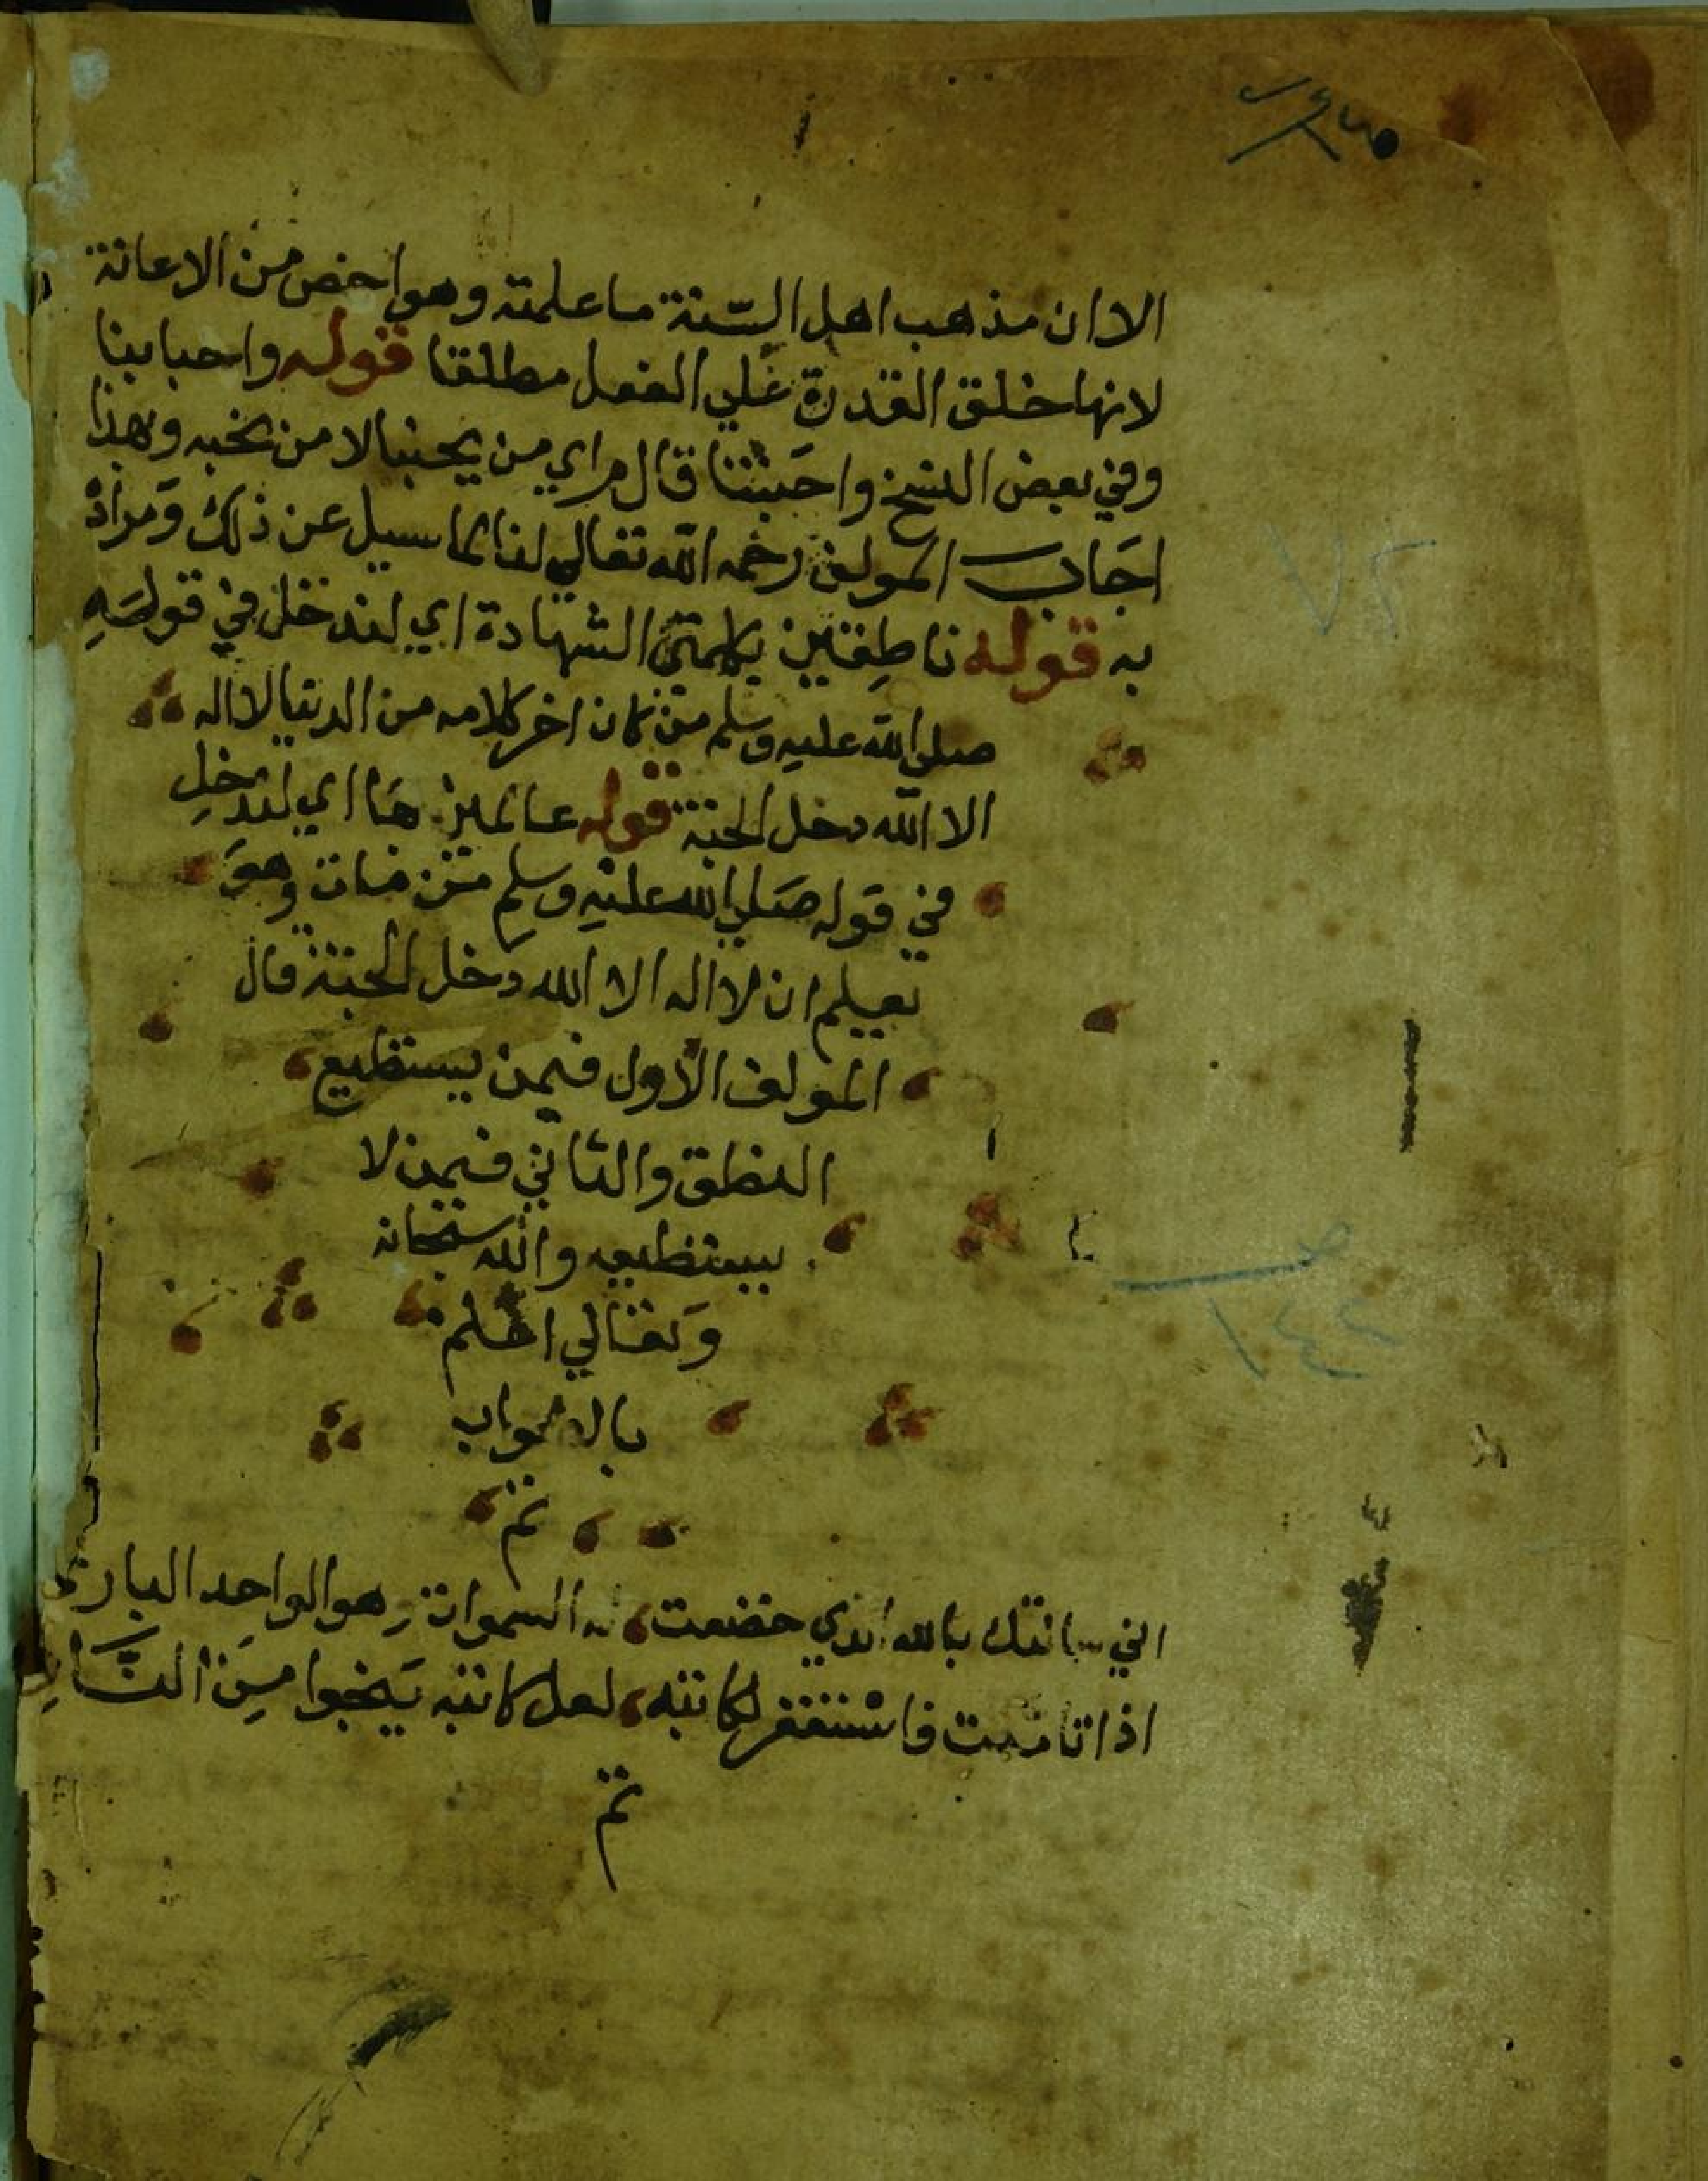 الا ان مذهب اهل السّنة ما علمته وهو اخص من الاعانة
لانها خلق القدرة علي الفعل مطلقا قوله واحبابنا
وفي بعض النسخ واحبتنا قال م راي من يحبنا لا من نحبه وبهذا
اجاب المولف رحمه الله تعالي لنا لما سيل عن ذلك ومراده
به قوله ناطقين بكلمتي الشهادة اي لندخل في قوله
صلي الله عليه وسلم من كان اخر كلامه من الدنيا لا اله
الا الله دخل الجنة قوله عالمين بها اي لندخل
في قوله صلي الله عليه وسلم من مات وهو
يعلم ان لا اله الا الله دخل الجنة قال
المولف الاول فيمن يستطيع
النطق والثاني فيمن لا
يستطيعه والله سبحانه
وتعالي اعلم
بالصواب
تم
اني سالتك بالله الذي خضعت له السموات وهو الواحد الباري
اذا تا فاستغفر لكاتبه لعل كاتبه ينجوا من النار
تم
٧٢